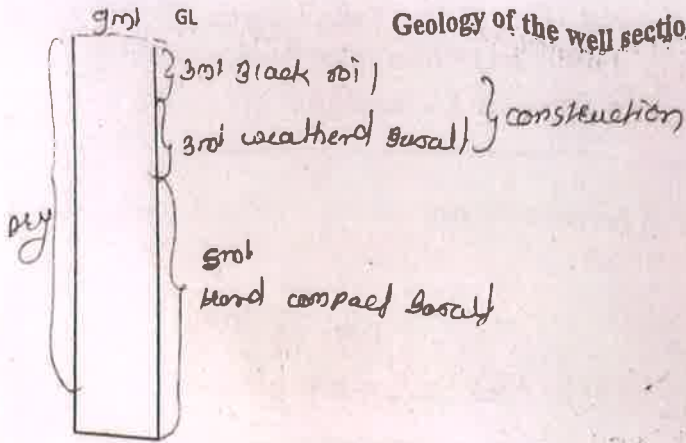 9mt GL
Geology of the well sectio
3mt Black soil
3mt weatherd Basalt
construction
Dry
5mt
Hard compact Basalt